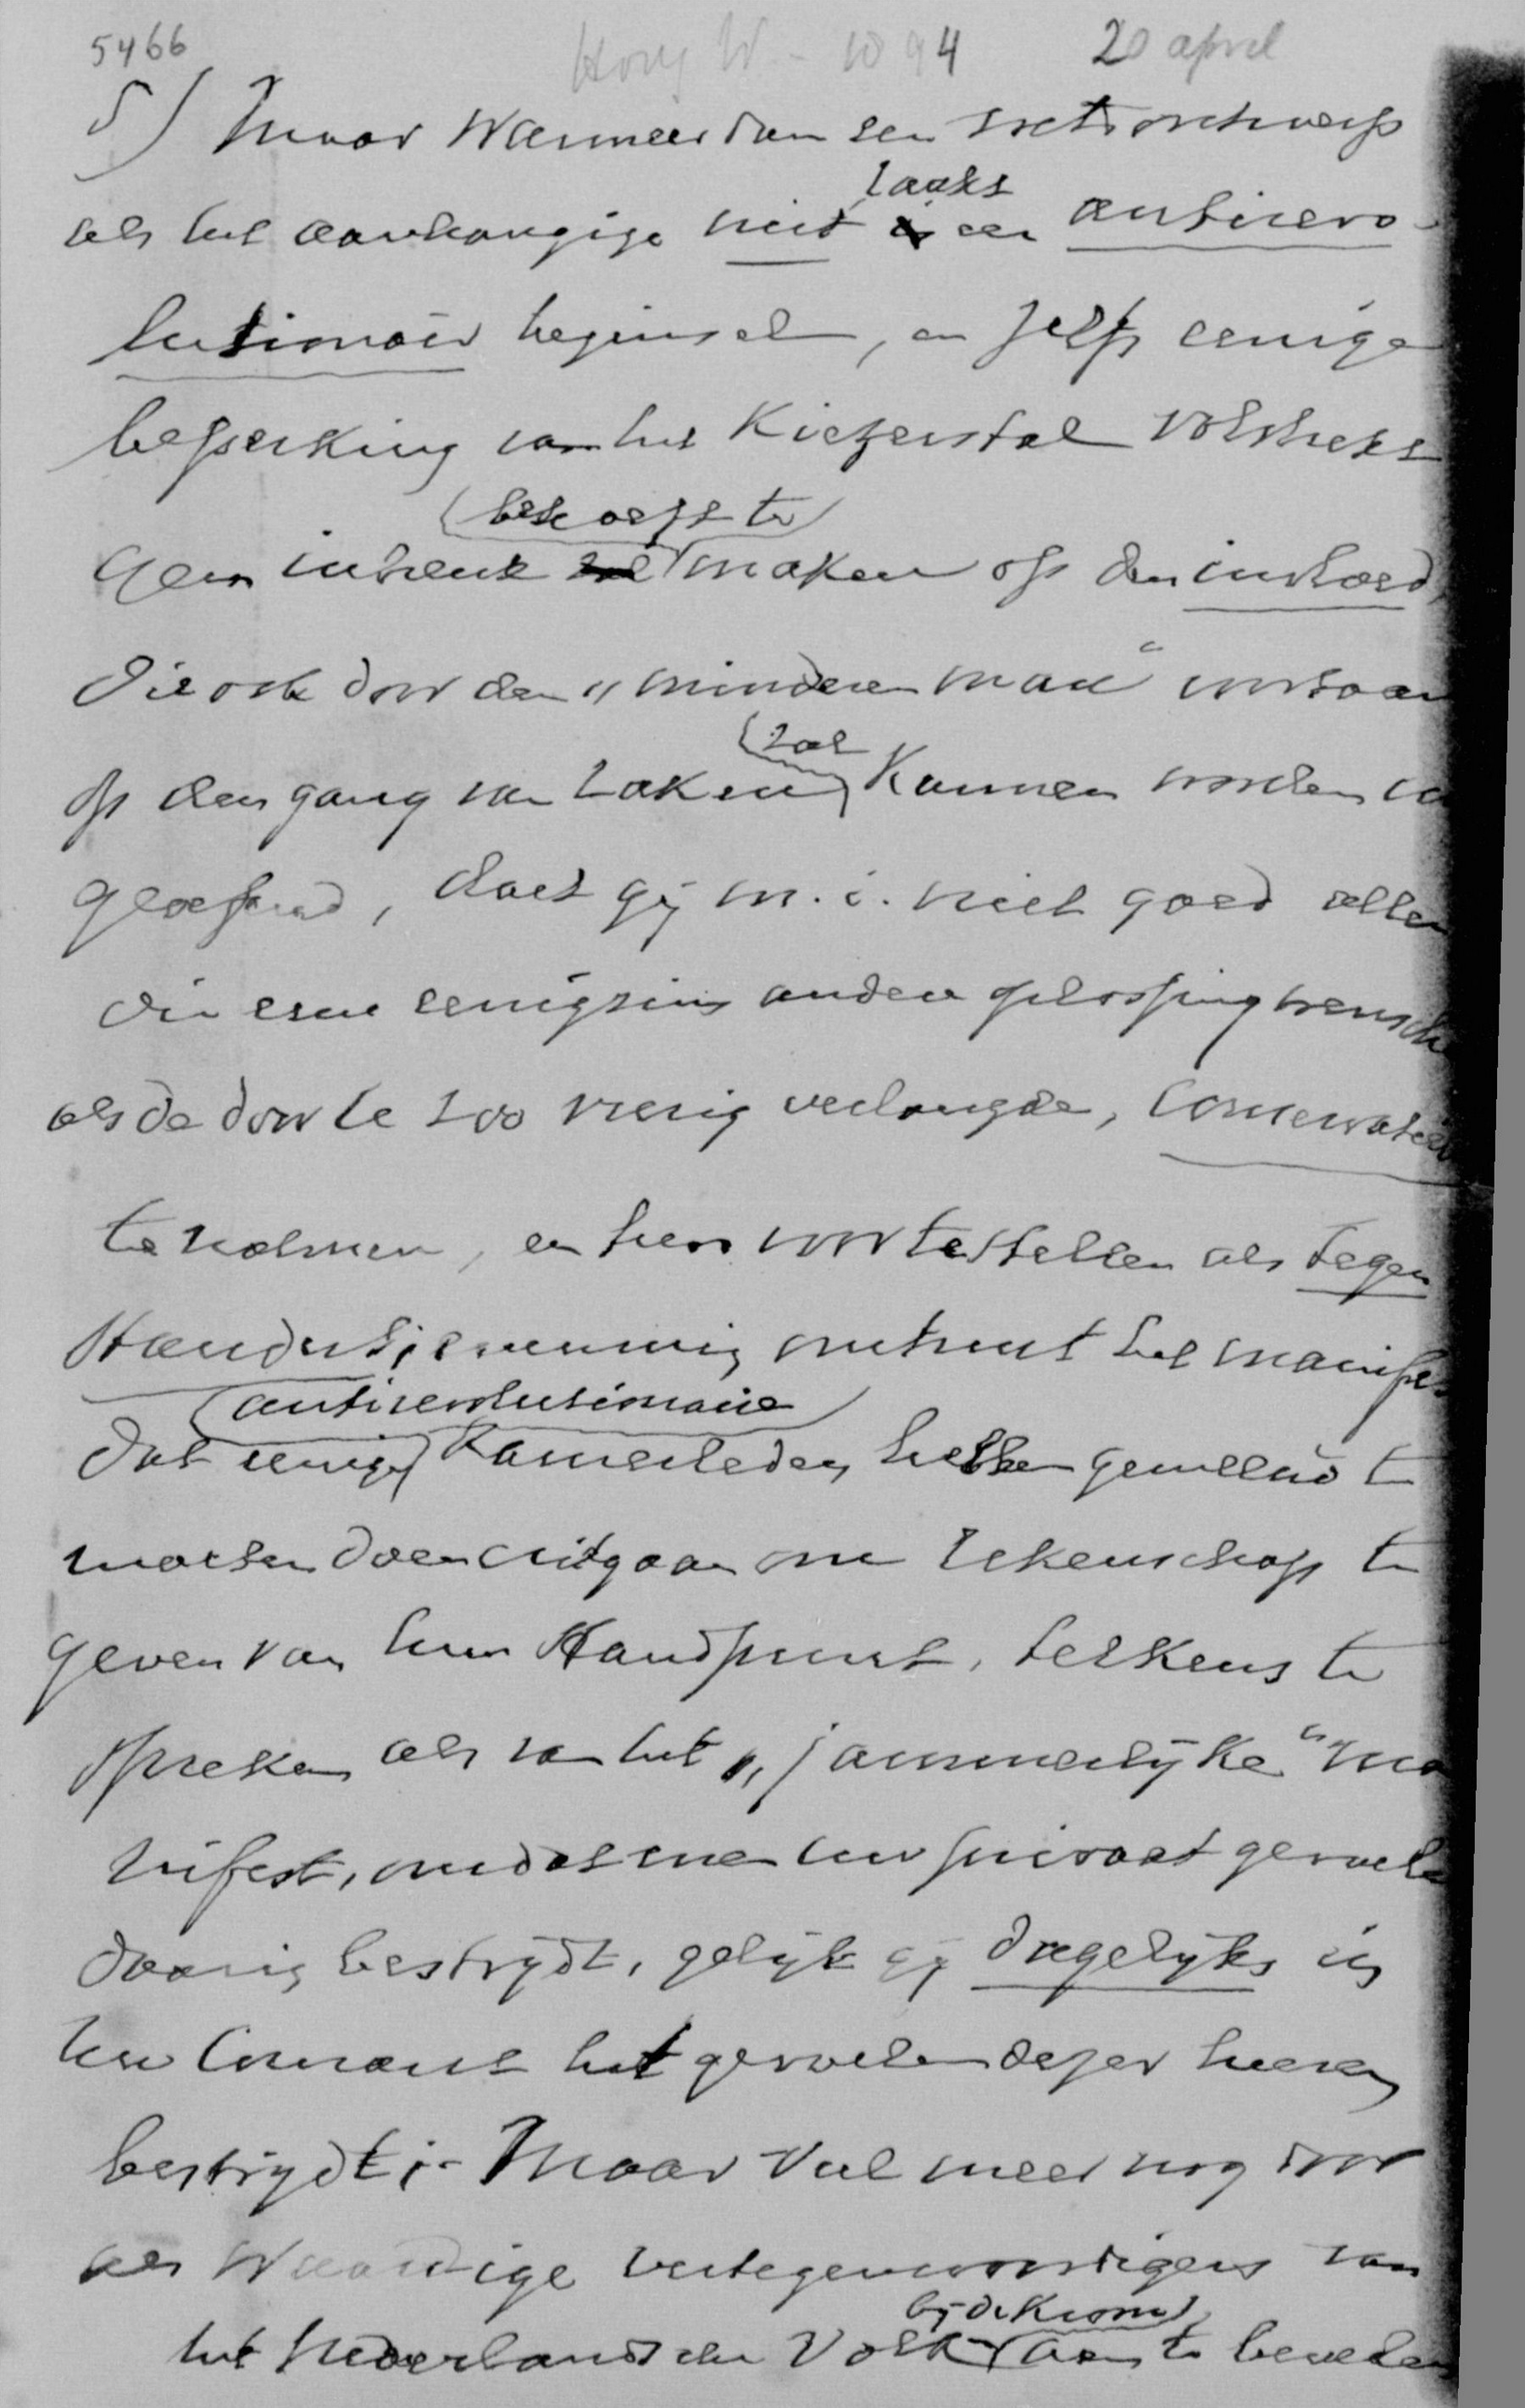 5466 Hovy W - 1894 20 april
5) Maar wanneer dan een wetsontwerp
raakt
als het aanhangige niet aan antirevo-
lutionair beginsel, en zelfs eenige
beperking van het Kiezerstal volstrekt
behoeft te
geen inbreuk maken op den invloed,
die ook door den „minderen man" voortaan
zal
op den gang van zaken kunnen worden
geoefend, doet gij m.i. niet goed allen
die eene eenigzins andere oplossing wensch
als de door U zoo vurig verlangde, conservatie
te noemen, en hen voor te stellen als tegen
standers; evenmin omtrent het manifes
antirevolutionaire
dat eenige Kamerleden hebben gemeend te
moeten doen uitgaan om rekenschap te
geven van hun standpunt, telkens te
spreken als van het „jammerlijke" ma
nifest, omdat men uw privaat gevoele
daarin bestrydt, gelijk gij dagelijks in
Uw Courant het gevoelen dezer heeren
bestrydt; - Maar veel meer nog door
als waardige vertegenwoordigers van
bij de Kroon
het Nederlandsche Volk aan te bevelen